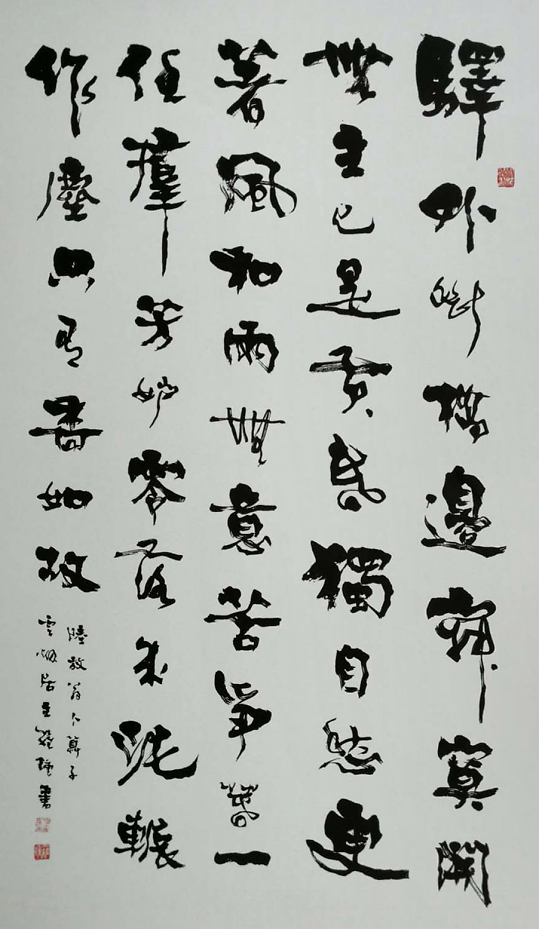 驛外斷橋邊寂寞開
無主已是黃昏獨自愁更
著風和雨無意苦爭春一
任羣芳妒零落成泥輾
作塵只有香如故
陸放翁卜算子
雲居主書